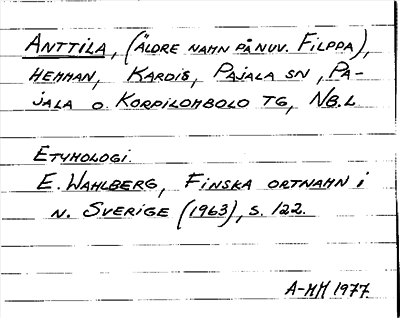 ANTTILA, (ÄLDRE NAMN PÅ NUV. FILPPA),
HEMMAN, KARDIS, PAJALA SN, PA-
JALA O. KORPILOMBOLO TG, NB.L
ETYMOLOGI.
E. WAHLBERG, FINSKA ORTNAMN I
N. SVERIGE (1963), S. 122.
A-MH 1977.